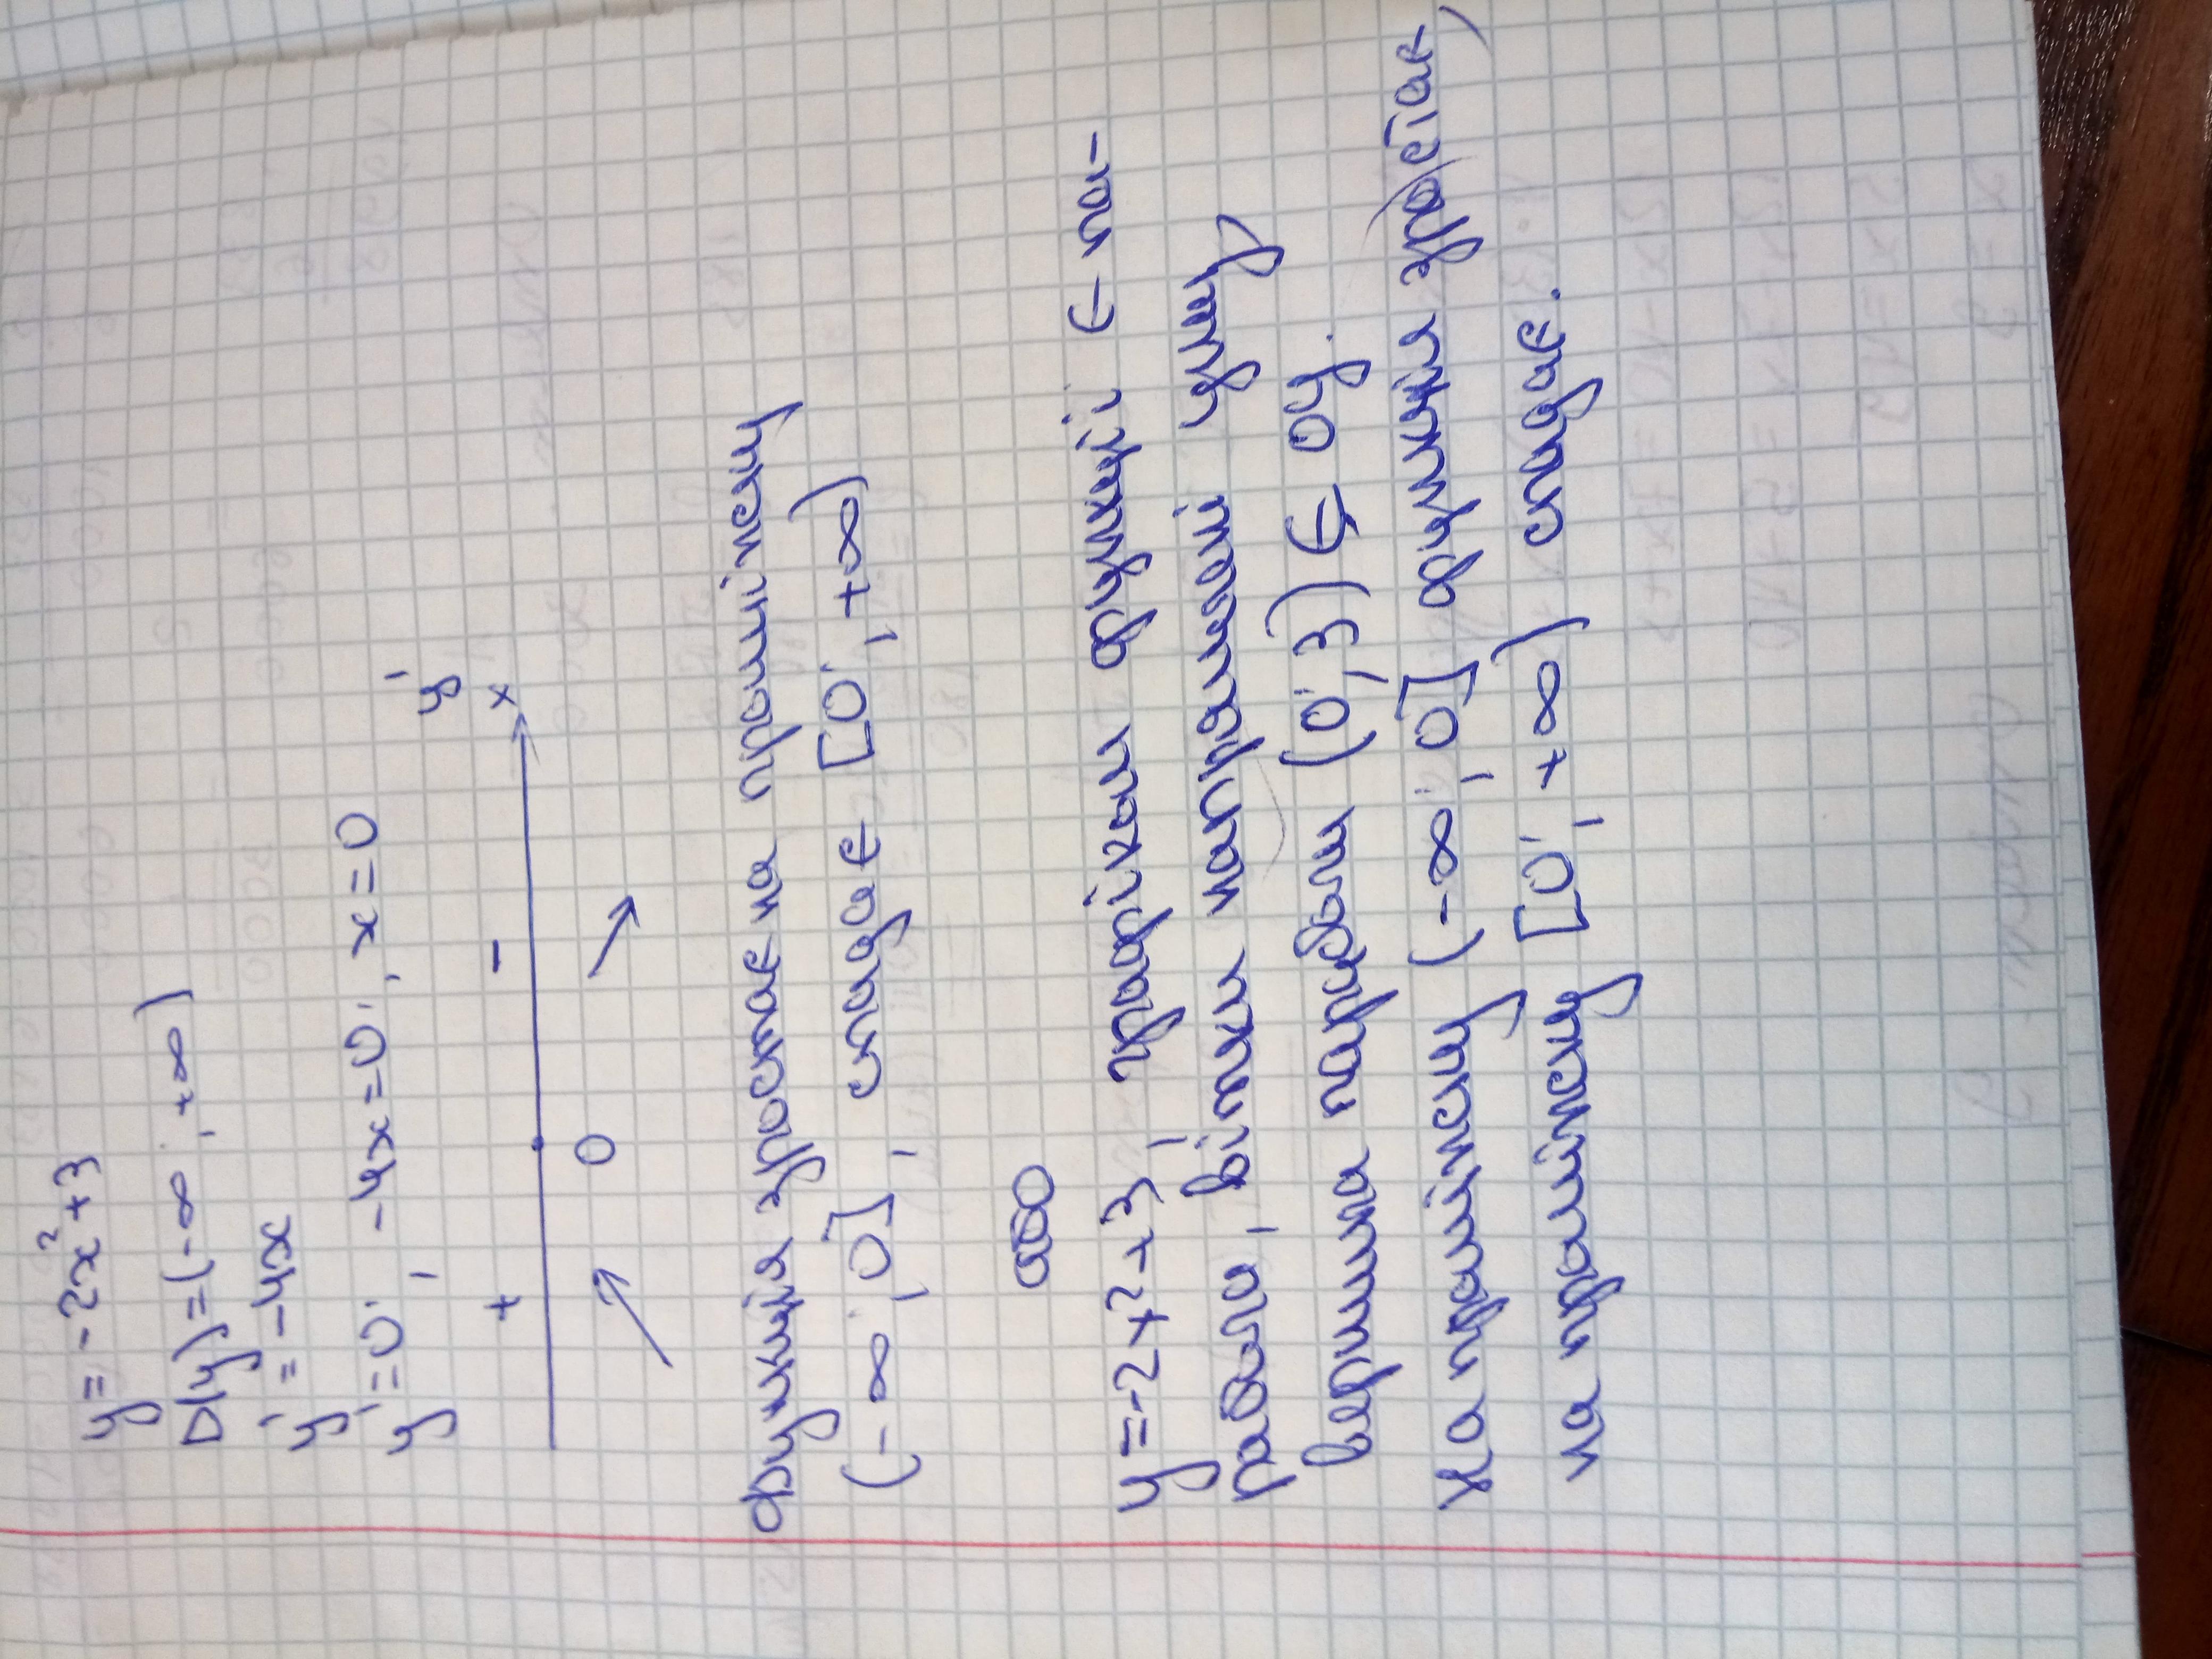 y = -2x² + 3
D(y) = (-∞; +∞)
y' = -4x
y' = 0; -4x = 0; x = 0
+ - y'
0 x
Функція зростає на проміжку
(-∞; 0], спадає [0; +∞)
або
y = -2x² + 3; графіком функції є па-
рабола, вітки напрямлені униз
вершина параболи (0; 3) ∈ oy.
На проміжку (-∞; 0] функція зростає,
на проміжку [0; +∞) спадає.